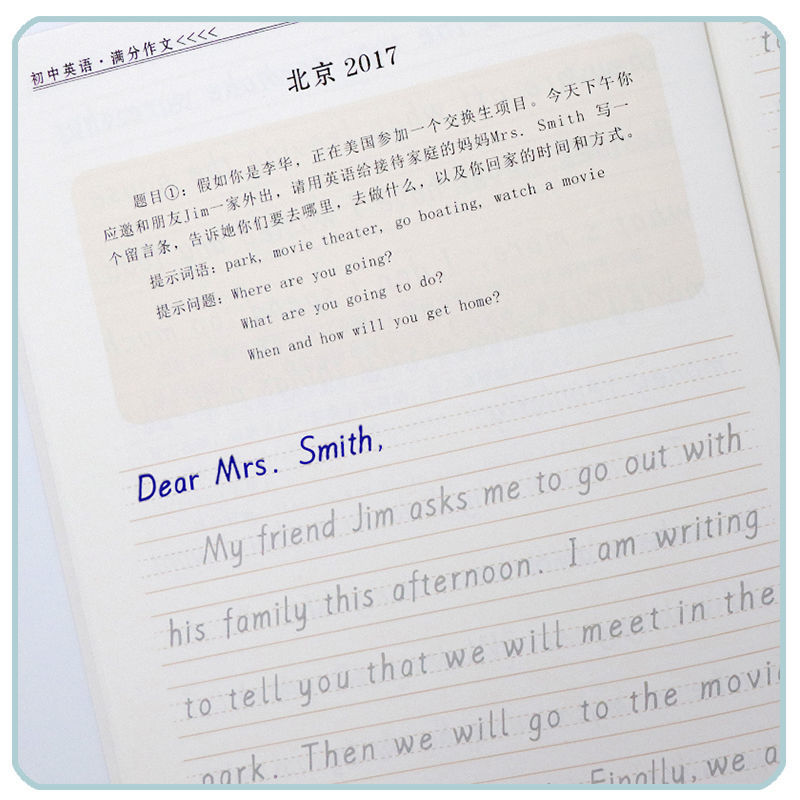 初中英语·满分作文<<<<
北京 2017
题目①：假如你是李华，正在美国参加一个交换生项目。今天下午你
应邀和朋友Jim一家外出，请用英语给接待家庭的妈妈Mrs. Smith 写一
个留言条，告诉她你们要去哪里，去做什么，以及你回家的时间和方式。
提示词语：park, movie theater, go boating, watch a movie
提示问题：Where are you going?
What are you going to do?
When and how will you get home?
Dear Mrs. Smith,
My friend Jim asks me to go out with
his family this afternoon. I am writing
to tell you that we will meet in the
park. Then we will go to the
Finally, we